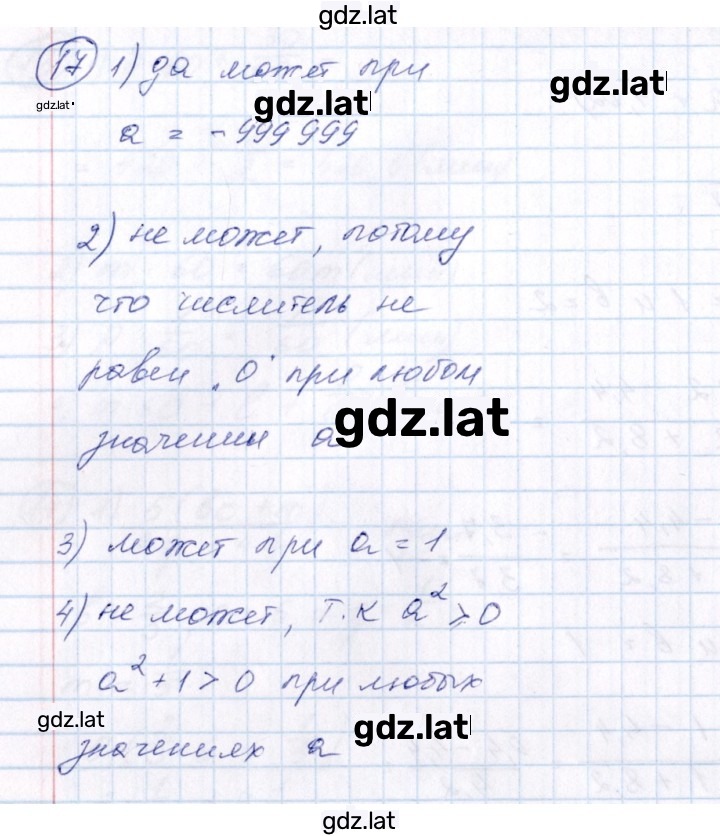 gdz.lat
17 1) да может при
gdz.lat
gdz.lat
gdz.lat
a = -999 999
2) не может, потому
что числитель не
равен "0" при любом
gdz.lat
значении a
3) может при a = 1
4) не может, т.к a² ≥ 0
a² + 1 > 0 при любых
gdz.lat
gdz.lat
значениях a
gdz.lat